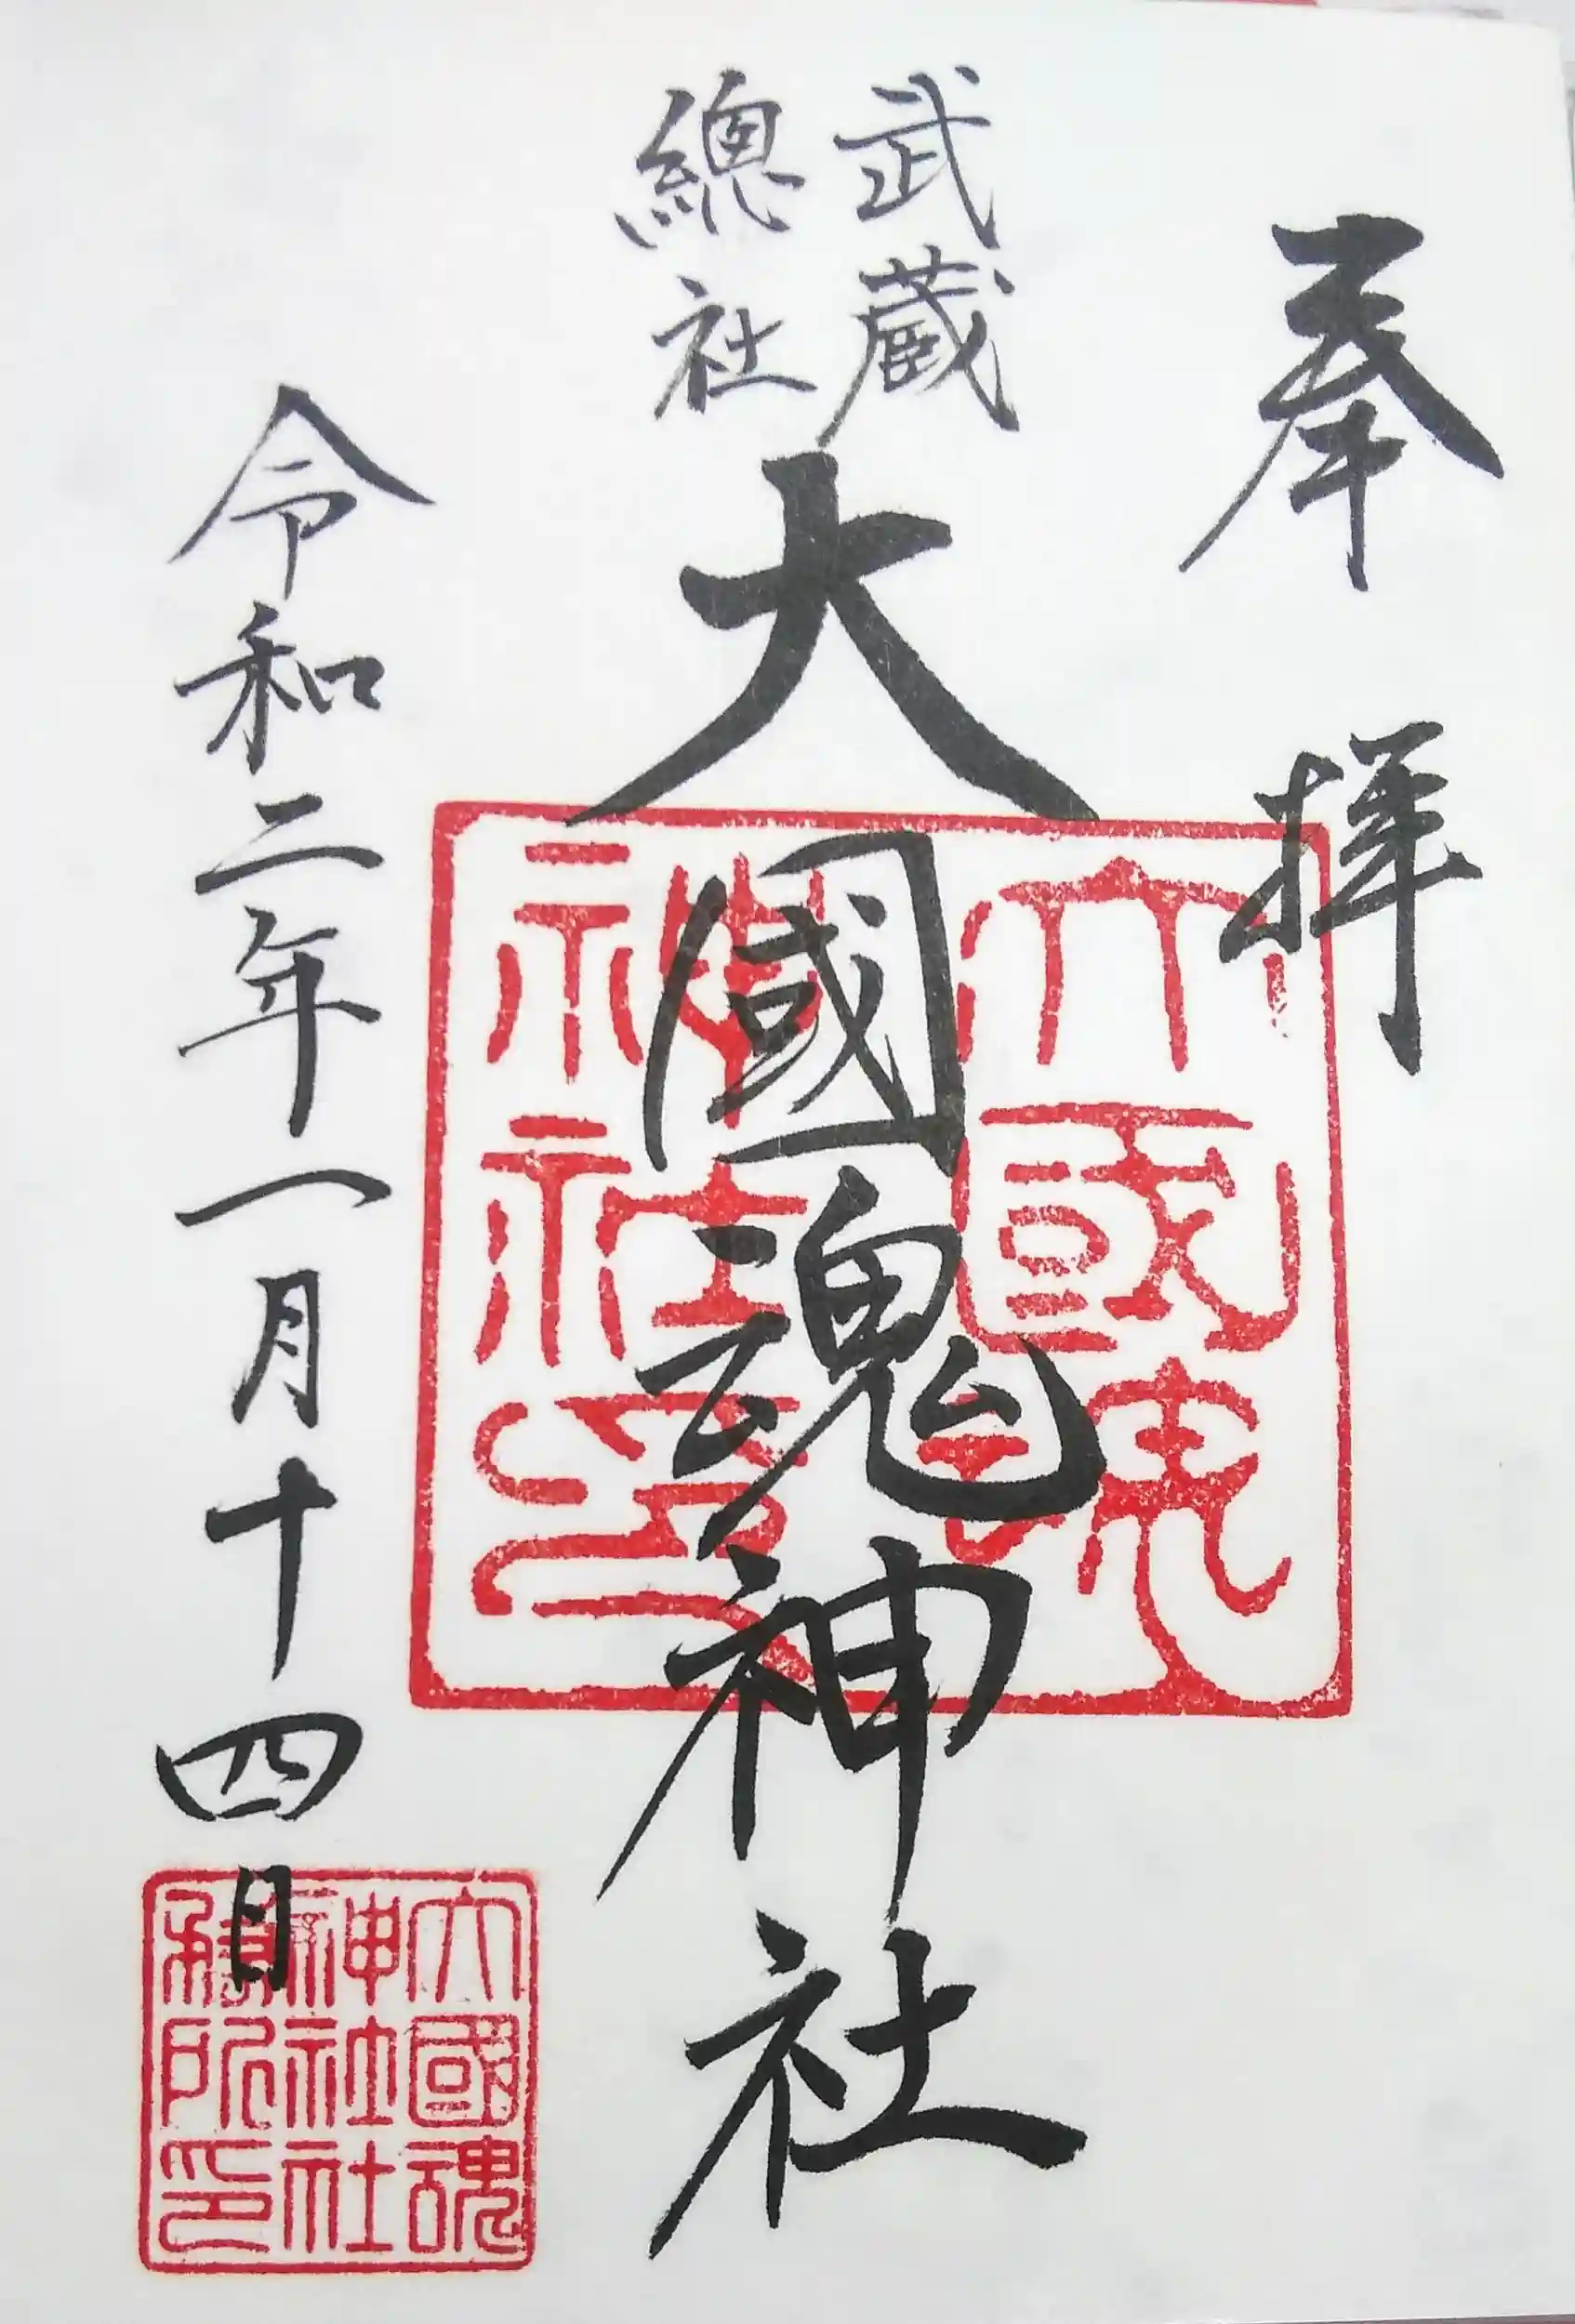 奉拝
武蔵
總社
大國魂神社
令和二年一月十四日
大國魂
神社印
大國魂
神社社
務所印